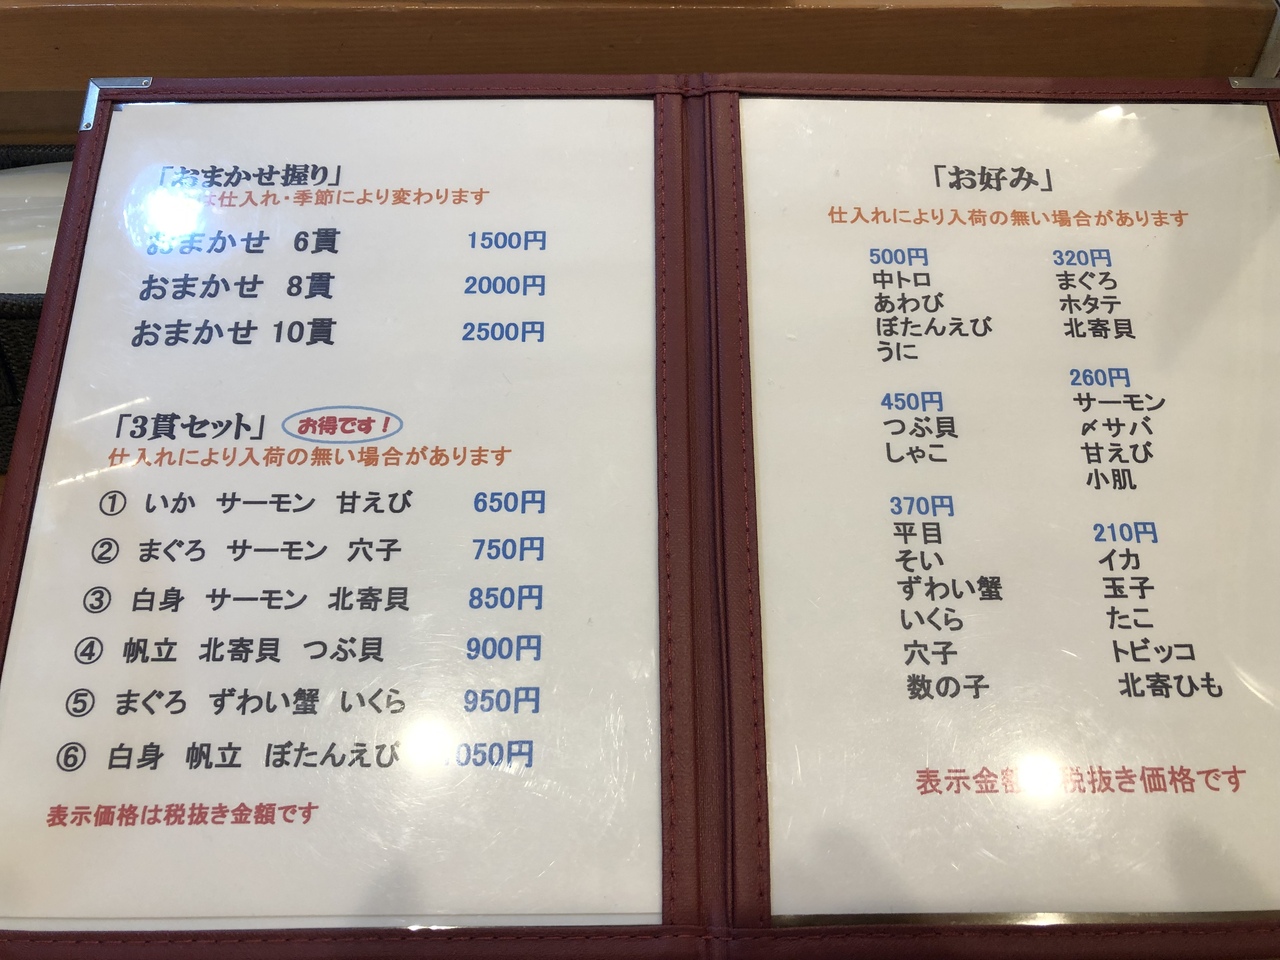 「おまかせ握り」
は仕入れ・季節により変わります
おまかせ 6貫 1500円
おまかせ 8貫 2000円
おまかせ 10貫 2500円
「3貫セット」 お得です！
仕入れにより入荷の無い場合があります
① いか サーモン 甘えび 650円
② まぐろ サーモン 穴子 750円
③ 白身 サーモン 北寄貝 850円
④ 帆立 北寄貝 つぶ貝 900円
⑤ まぐろ ずわい蟹 いくら 950円
⑥ 白身 帆立 ぼたんえび 050円
表示価格は税抜き金額です
「お好み」
仕入れにより入荷の無い場合があります
500円
中トロ
あわび
ぼたんえび
うに
450円
つぶ貝
しゃこ
370円
平目
そい
ずわい蟹
いくら
穴子
数の子
320円
まぐろ
ホタテ
北寄貝
260円
サーモン
〆サバ
甘えび
小肌
210円
イカ
玉子
たこ
トビッコ
北寄ひも
表示金額 税抜き価格です